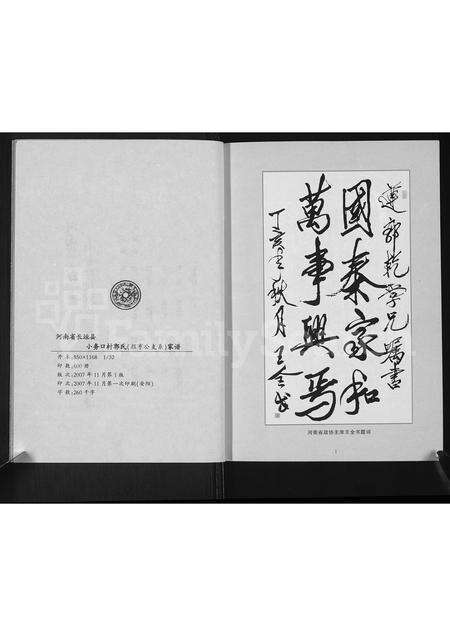 河南省长垣县
小务口村郭氏(经孝公支系)家谱
开本:850×1168 1/32
印数:600册
版次:2007年11月第1版
印次:2007年11月第一次印刷(安阳)
字数:260千字
遵郭乾学兄嘱书
國泰家和
萬事興焉
丁亥年秋月王全书
河南省政协主席王全书题词
1